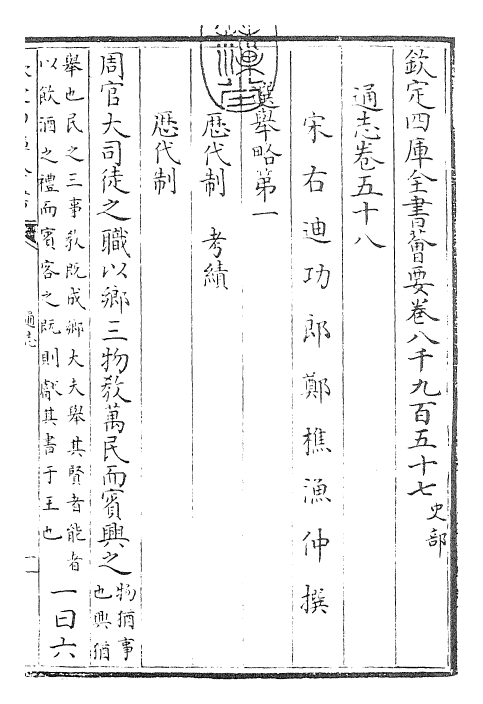 欽定四庫全書薈要卷八千九百五十七 史部
通志卷五十八
宋右迪功郎鄭樵漁仲撰
選舉略第一
歴代制 考績
歴代制
周官大司徒之職以鄉三物教萬民而賓興之 物猶事
也興猶
舉也民之三事教既成鄉大夫舉其賢者能者
以飲酒之禮而賓客之既則獻其書于王也 一曰六
通志
一